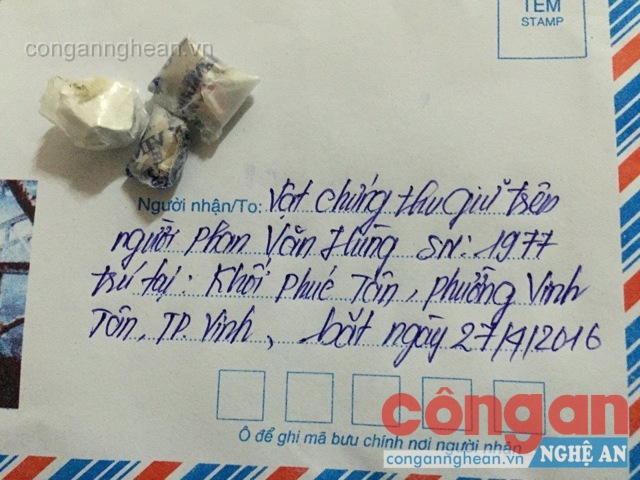 TEM
STAMP
congannghean.vn
Người nhận/To: Vật chứng thu giữ trên
người Phan Văn Hùng SN: 1977
trú tại: Khối Phúc Tân, phường Vinh
Tân, TP. Vinh, bắt ngày 27/4/2016
côngan
NGHỆ AN
Ô để ghi mã bưu chính nơi người nhận
congannghean.vn